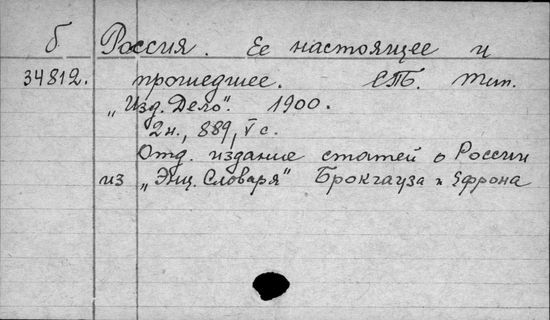 б Россия. Ее настоящее и
34812. прошедшее. СПб. тип.
„Изд. Дело". 1900.
2н., 889, V с.
Отд. издание статей о России
из „Энц. Словаря" Брокгауза и Ефрона